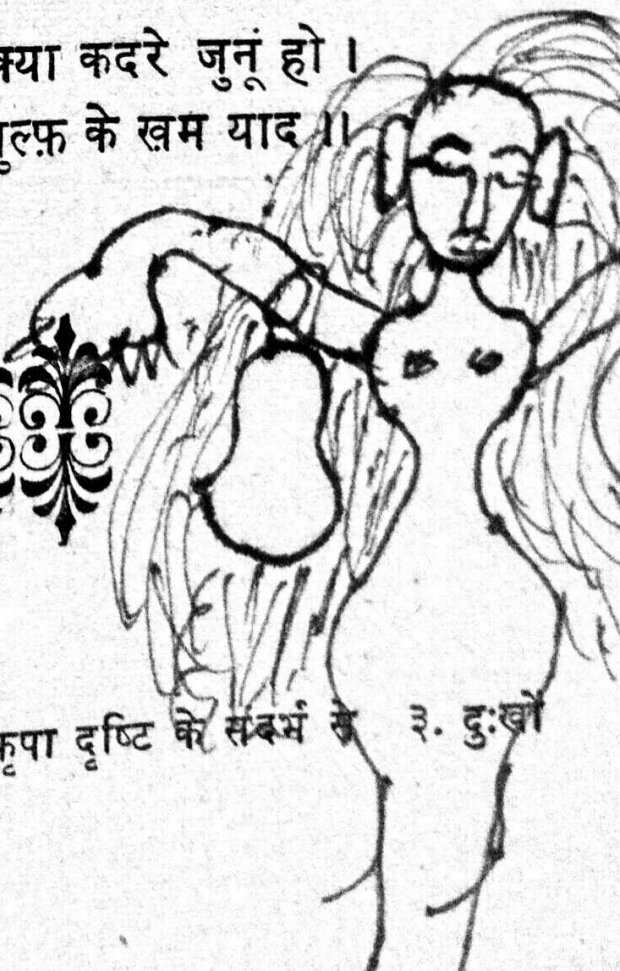 क्या कदरे जुनूं हो ।
के ख़म याद ॥
दृष्टि के संदर्भ से ३. दुःखों